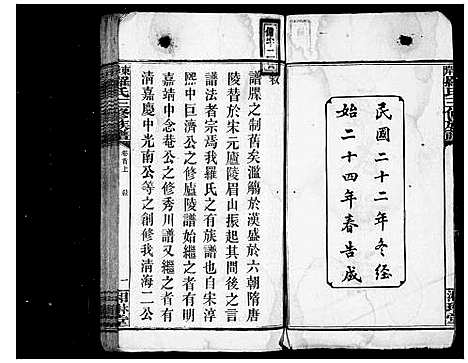 民國二十二年冬經
始二十四年春告成
敘
譜牒之制舊矣濫觴於漢盛於六朝隋唐
陵替於宋元廬陵眉山振起其間後之言
譜法者宗焉我羅氏之有族譜也自宋淳
熙中巨濟公之修廬陵譜始繼之者有明
嘉靖中念菴公之修秀川譜又繼之者有
清嘉慶中光南公等之創修我清海二公
羅氏三修族譜
卷首上
敘
一